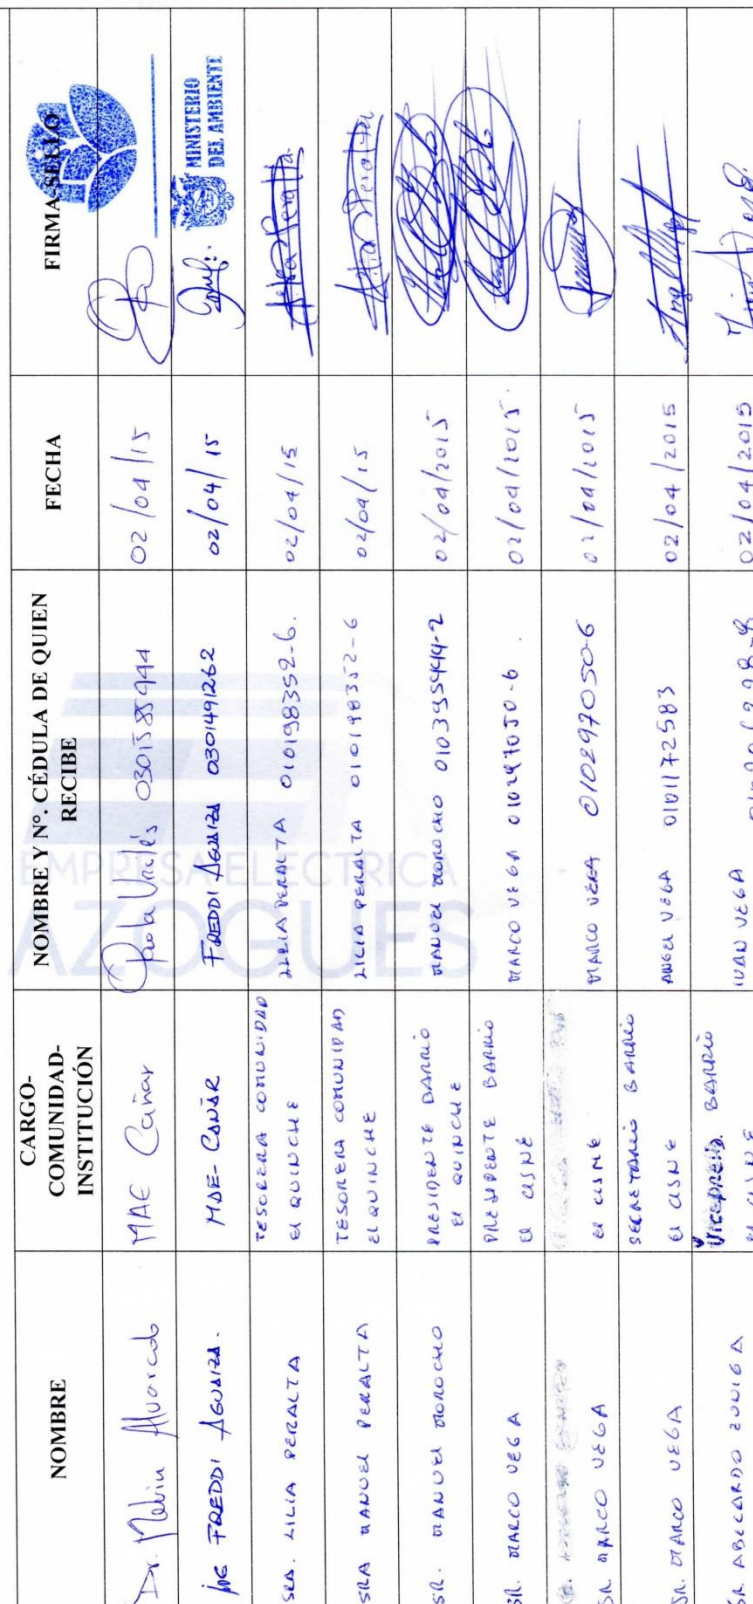 NOMBRE
CARGO-
COMUNIDAD-
INSTITUCIÓN
NOMBRE Y Nº. CÉDULA DE QUIEN
RECIBE
FECHA
FIRMA-SELLO
Dr. Melvin Alvarado
MAE Cañar
Paola Urgilés 0301585444
02/04/15
Ing FREDDI AGUAIZA.
MAE-CAÑAR
FREDDI AGUAIZA 0301491262
02/04/15
MINISTERIO
DEL AMBIENTE
SRA. LILIA PERALTA
TESORERA COMUNIDAD
El QUINCHE
LILIA PERALTA 010198352-6.
02/04/15
Lilia Peralta
SRA MANUEL PERALTA
TESORERA COMUNIDAD
El QUINCHE
LILIA PERALTA 010198352-6
02/04/15
Lilia Peralta
SR. MANUEL MOROCHO
PRESIDENTE BARRIO
El QUINCHE
MANUEL MOROCHO
02/04/2015
SR. MARCO VEGA
PRESIDENTE BARRIO
El CISNE
MARCO VEGA 010297050-6.
02/04/2015.
SR. MARCO VEGA
El CISNE
MARCO VEGA 010297050-6
02/04/2015
SR. MARCO VEGA
SECRETARIO BARRIO
El CISNE
ANGEL VEGA 0101172583
02/04/2015
SR. ABELARDO ZUÑIGA
Vicepresid. BARRIO
El CISNE
IVAN VEGA
02/04/2015
EMPRESA ELECTRICA
AZOGUES